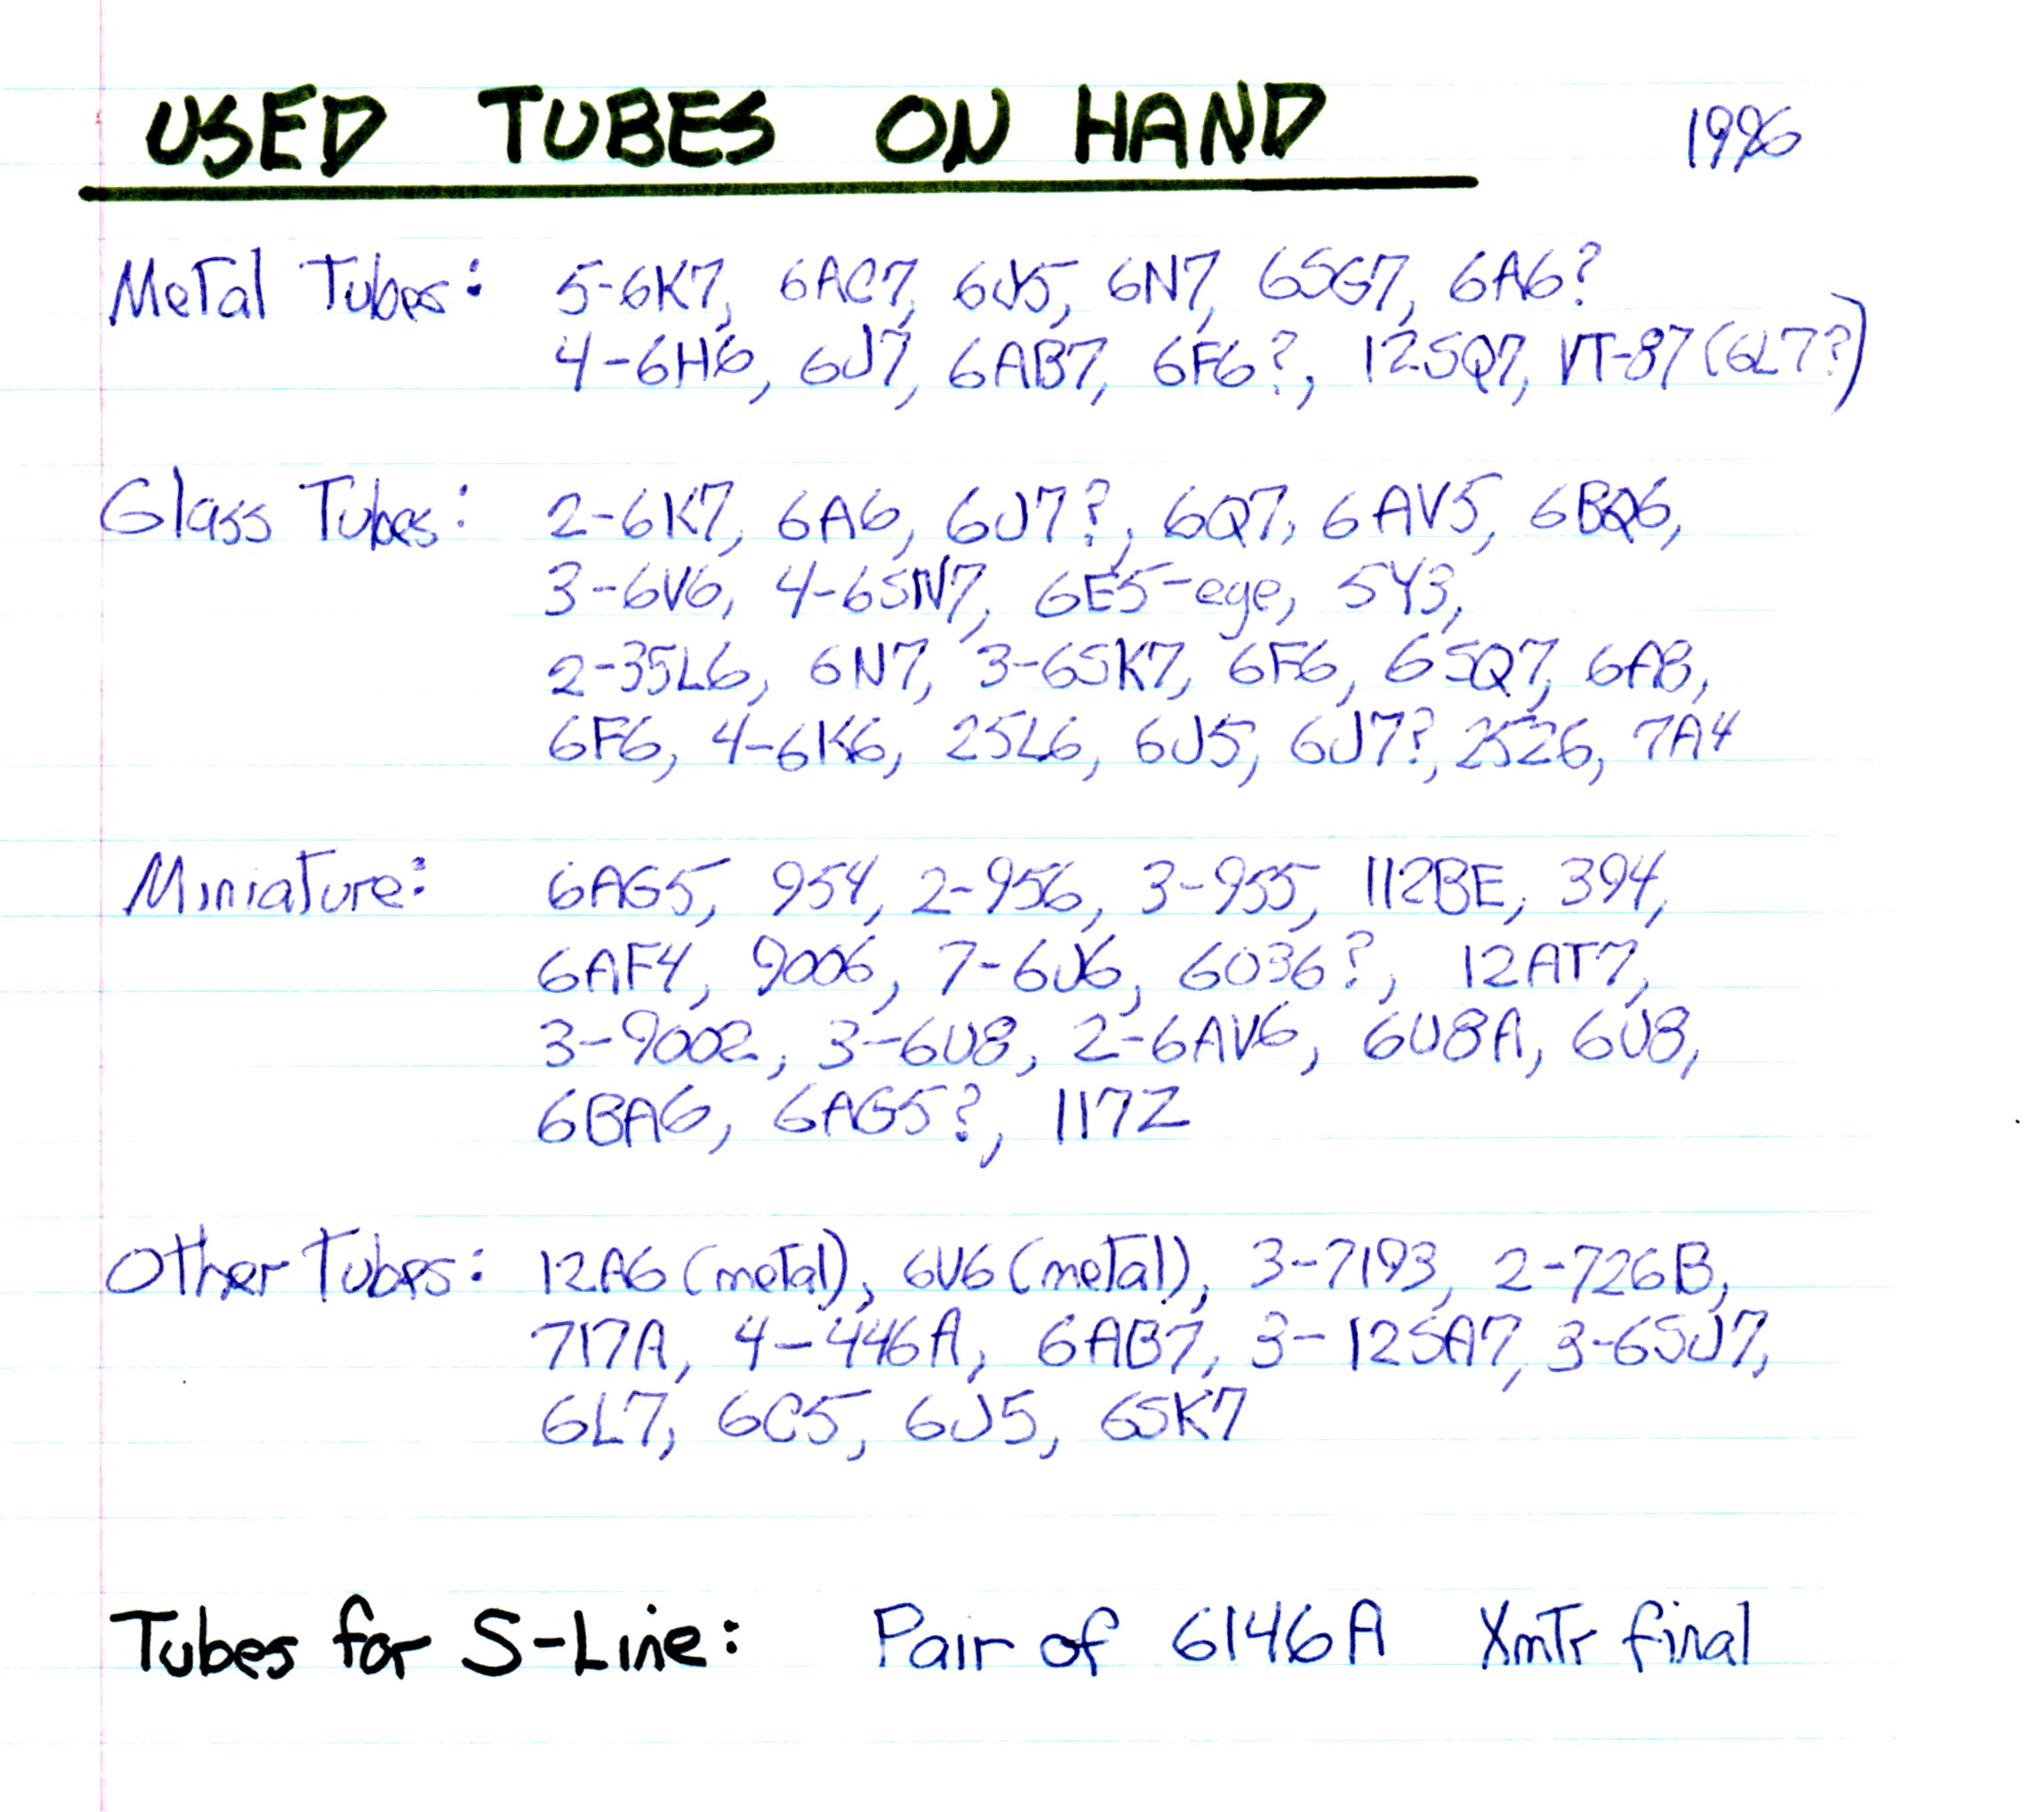 USED TUBES ON HAND 1996
Metal Tubes: 5-6K7, 6AC7, 6J5, 6N7, 6SG7, 6A6?
4-6H6, 6J7, 6AB7, 6F6?, 12SQ7, VT-87 (6L7?)
Glass Tubes: 2-6K7, 6A6, 6J7?, 6Q7, 6AV5, 6BQ6,
3-6V6, 4-6SN7, 6E5-eye, 5Y3,
2-35L6, 6N7, 3-6SK7, 6F6, 6SQ7, 6A8,
6F6, 4-6K6, 25L6, 6J5, 6J7?, 25Z6, 7A4
Miniature: 6AG5, 954, 2-956, 3-955, 112BE, 394,
6AF4, 9006, 7-6J6, 6036?, 12AT7,
3-9002, 3-6U8, 2-6AV6, 6U8A, 6U8,
6BA6, 6AG5?, 117Z
Other Tubes: 12A6 (metal), 6V6 (metal), 3-7193, 2-726B,
717A, 4-446A, 6AB7, 3-12SA7, 3-6SJ7,
6L7, 6C5, 6J5, 6SK7
Tubes for S-Line: Pair of 6146A Xmtr final